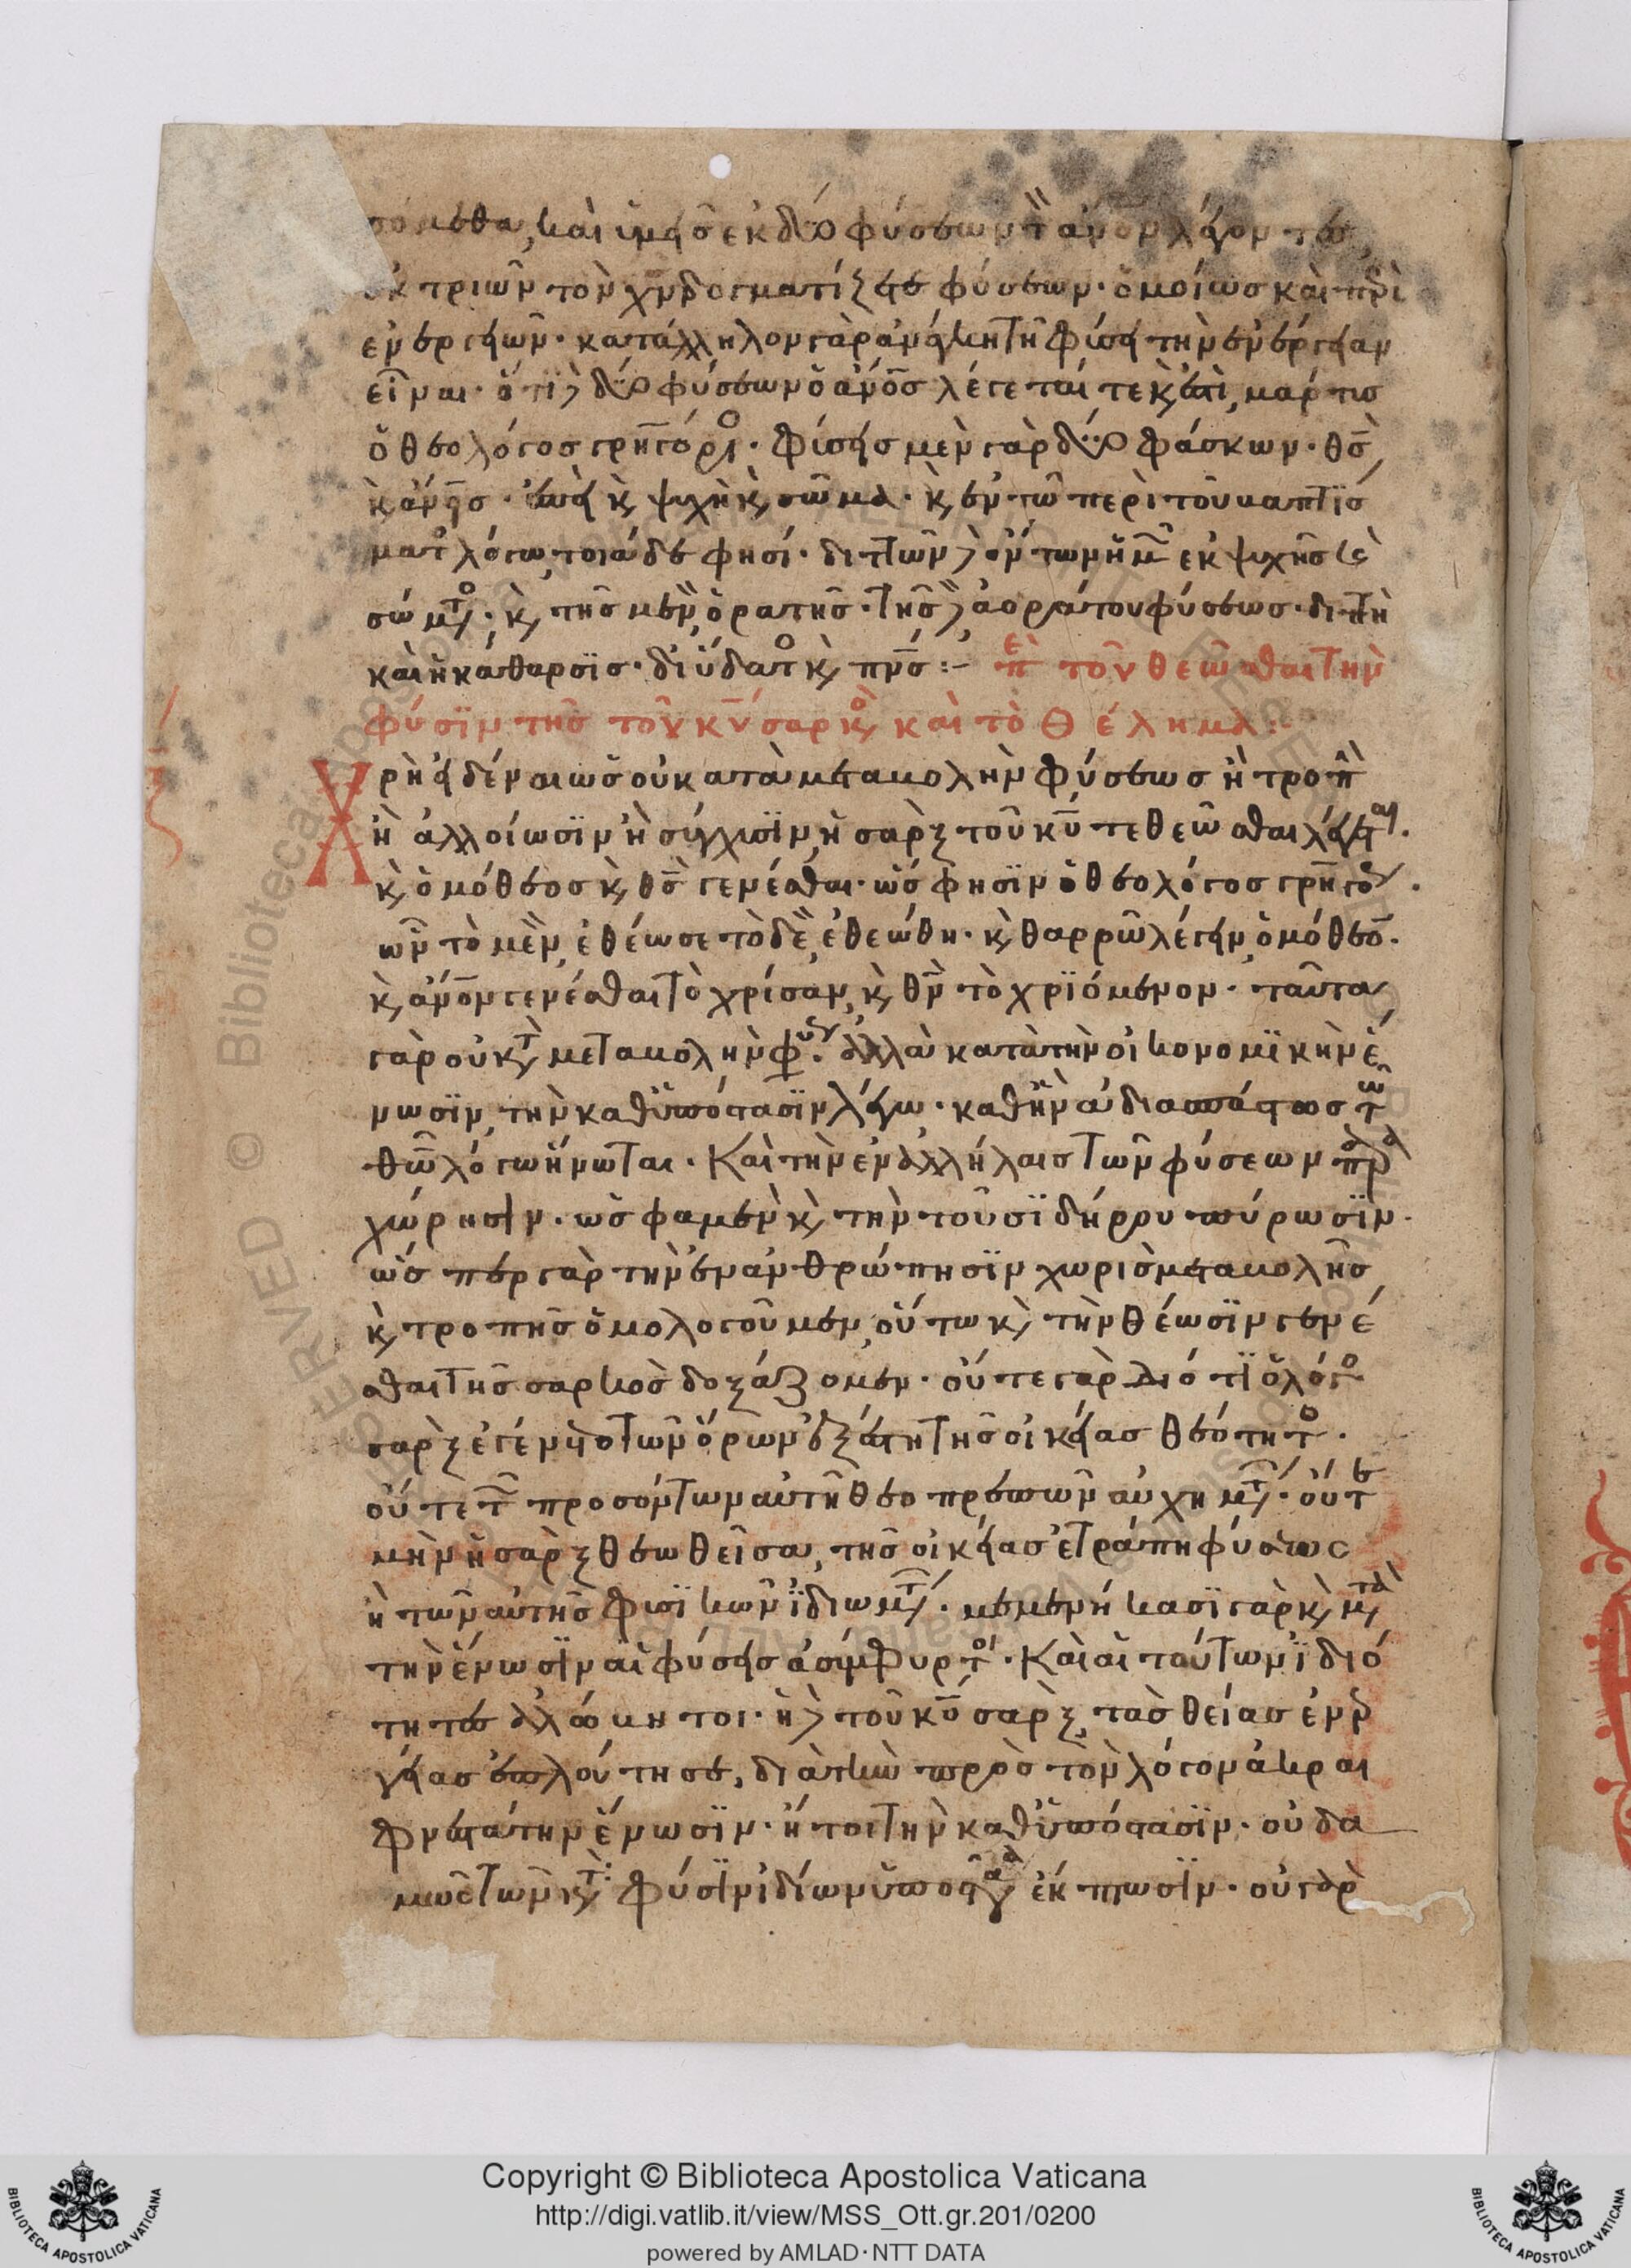 σόμεθα, καὶ ὑμεῖς ἐκ δύο φύσεων τ̀ ἄνον λέγοντες,
ἐκ τριῶν τὸν χν δογματίζετε φύσεων· ὁμοίως καὶ περὶ
ἐνεργειῶν· κατάλληλον γὰρ ἀνάγκη τῆ φύσει τὴν ἐνέργειαν
εἶναι· ὅτι δὲ δύο φύσεων ὁ ἄνος λέγεταί τε κ ἐστὶ, μάρτυς
ὁ θεολόγος γρηγόριος· φύσεις μὲν γὰρ δύο φάσκων· θς
κ ἄνος· ἐπεὶ κ ψυχὴ κ σῶμα· κ ἐν τῶ περὶ τοῦ βαπτίσ
ματος λόγω, τοιάδε φησί· διττῶν δὲ ὄντων ἡμῶν ἐκ ψυχῆς κ
σώματος· κ τῆς μὲν ὁρατῆς· τῆς δὲ ἀοράτου φύσεως· διττὴ
καὶ ἡ κάθαρσις· δι' ὕδατος κ πνς:– περὶ τοῦ θεωθῆναι τὴν
φύσιν τῆς τοῦ κυ σαρκὸς καὶ τὸ θέλημα:–
Χρὴ εἰδέναι ὡς οὐ κατὰ μεταβολὴν φύσεως ἢ τροπὴ
ἢ ἀλλοίωσιν ἢ σύγχυσιν, ἡ σὰρξ τοῦ κυ τεθεῶσθαι λέγεται.
κ ὁμόθεος κ θς γενέσθαι· ὥς φησιν ὁ θεολόγος γρηγόρ.
ὧν τὸ μὲν, ἐθέωσε τὸ δὲ, ἐθεώθη· κ θαρρῶ λέγειν, ὁμόθεο.
κ ἄνον γενέσθαι τὸ χρίσαν, κ θν τὸ χριόμενον· ταῦτα
γὰρ οὐ κτ μεταβολὴν φύσ. ἀλλὰ κατὰ τὴν οἰκονομικὴν ἕ
νωσιν, τὴν καθ' ὑπόστασιν λέγω· καθ' ἣν ἀδιασπάστως τῶ
θῶ λόγω ἥνωται· Καὶ τὴν ἐν ἀλλήλαις τῶν φύσεων περι
χώρησιν· ὥς φαμεν κ τὴν τοῦ σιδήρου πύρωσιν·
ὥσπερ γὰρ τὴν ἐνανθρώπησιν χωρὶς μεταβολῆς
κ τροπῆς ὁμολογοῦμεν, οὕτω κ τὴν θέωσιν γενέ
σθαι τῆς σαρκὸς δοξάζομεν· οὔτε γὰρ διότι ὁ λόγο
σὰρξ ἐγένετο τῶν ὅρων ἐξέστη τῆς οἰκείας θεότητο·
οὔτε τ προσόντων αὐτῆ θεοπρεπῶν αὐχημτ· οὔτε
μὴν ἡ σὰρξ θεωθεῖσα, τῆς οἰκείας ἐτράπη φύσεως
ἢ τῶν αὐτῆς φυσικῶν ἰδιωμτ· μεμενήκασι γὰρ κ μτὰ
τὴν ἕνωσιν αἱ φύσεις ἀσύμφυρτο· Καὶ αἱ τούτων ἰδιό
τητες ἀλώβητοι· ἡ δὲ τοῦ κυ σὰρξ, τὰς θείας ἐνερ
γείας ἐπλούτησε, διὰ τὴν πρὸς τὸν λόγον ἀκραι
φνεστάτην ἕνωσιν· ἤτοι τὴν καθ' ὑπόστασιν· οὐδα
μῶς τῶν κτ φύσιν ἰδίων ὑποστᾶσα ἔκπτωσιν· οὐ γὰρ
Copyright © Biblioteca Apostolica Vaticana
http://digi.vatlib.it/view/MSS_Ott.gr.201/0200
powered by AMLAD·NTT DATA